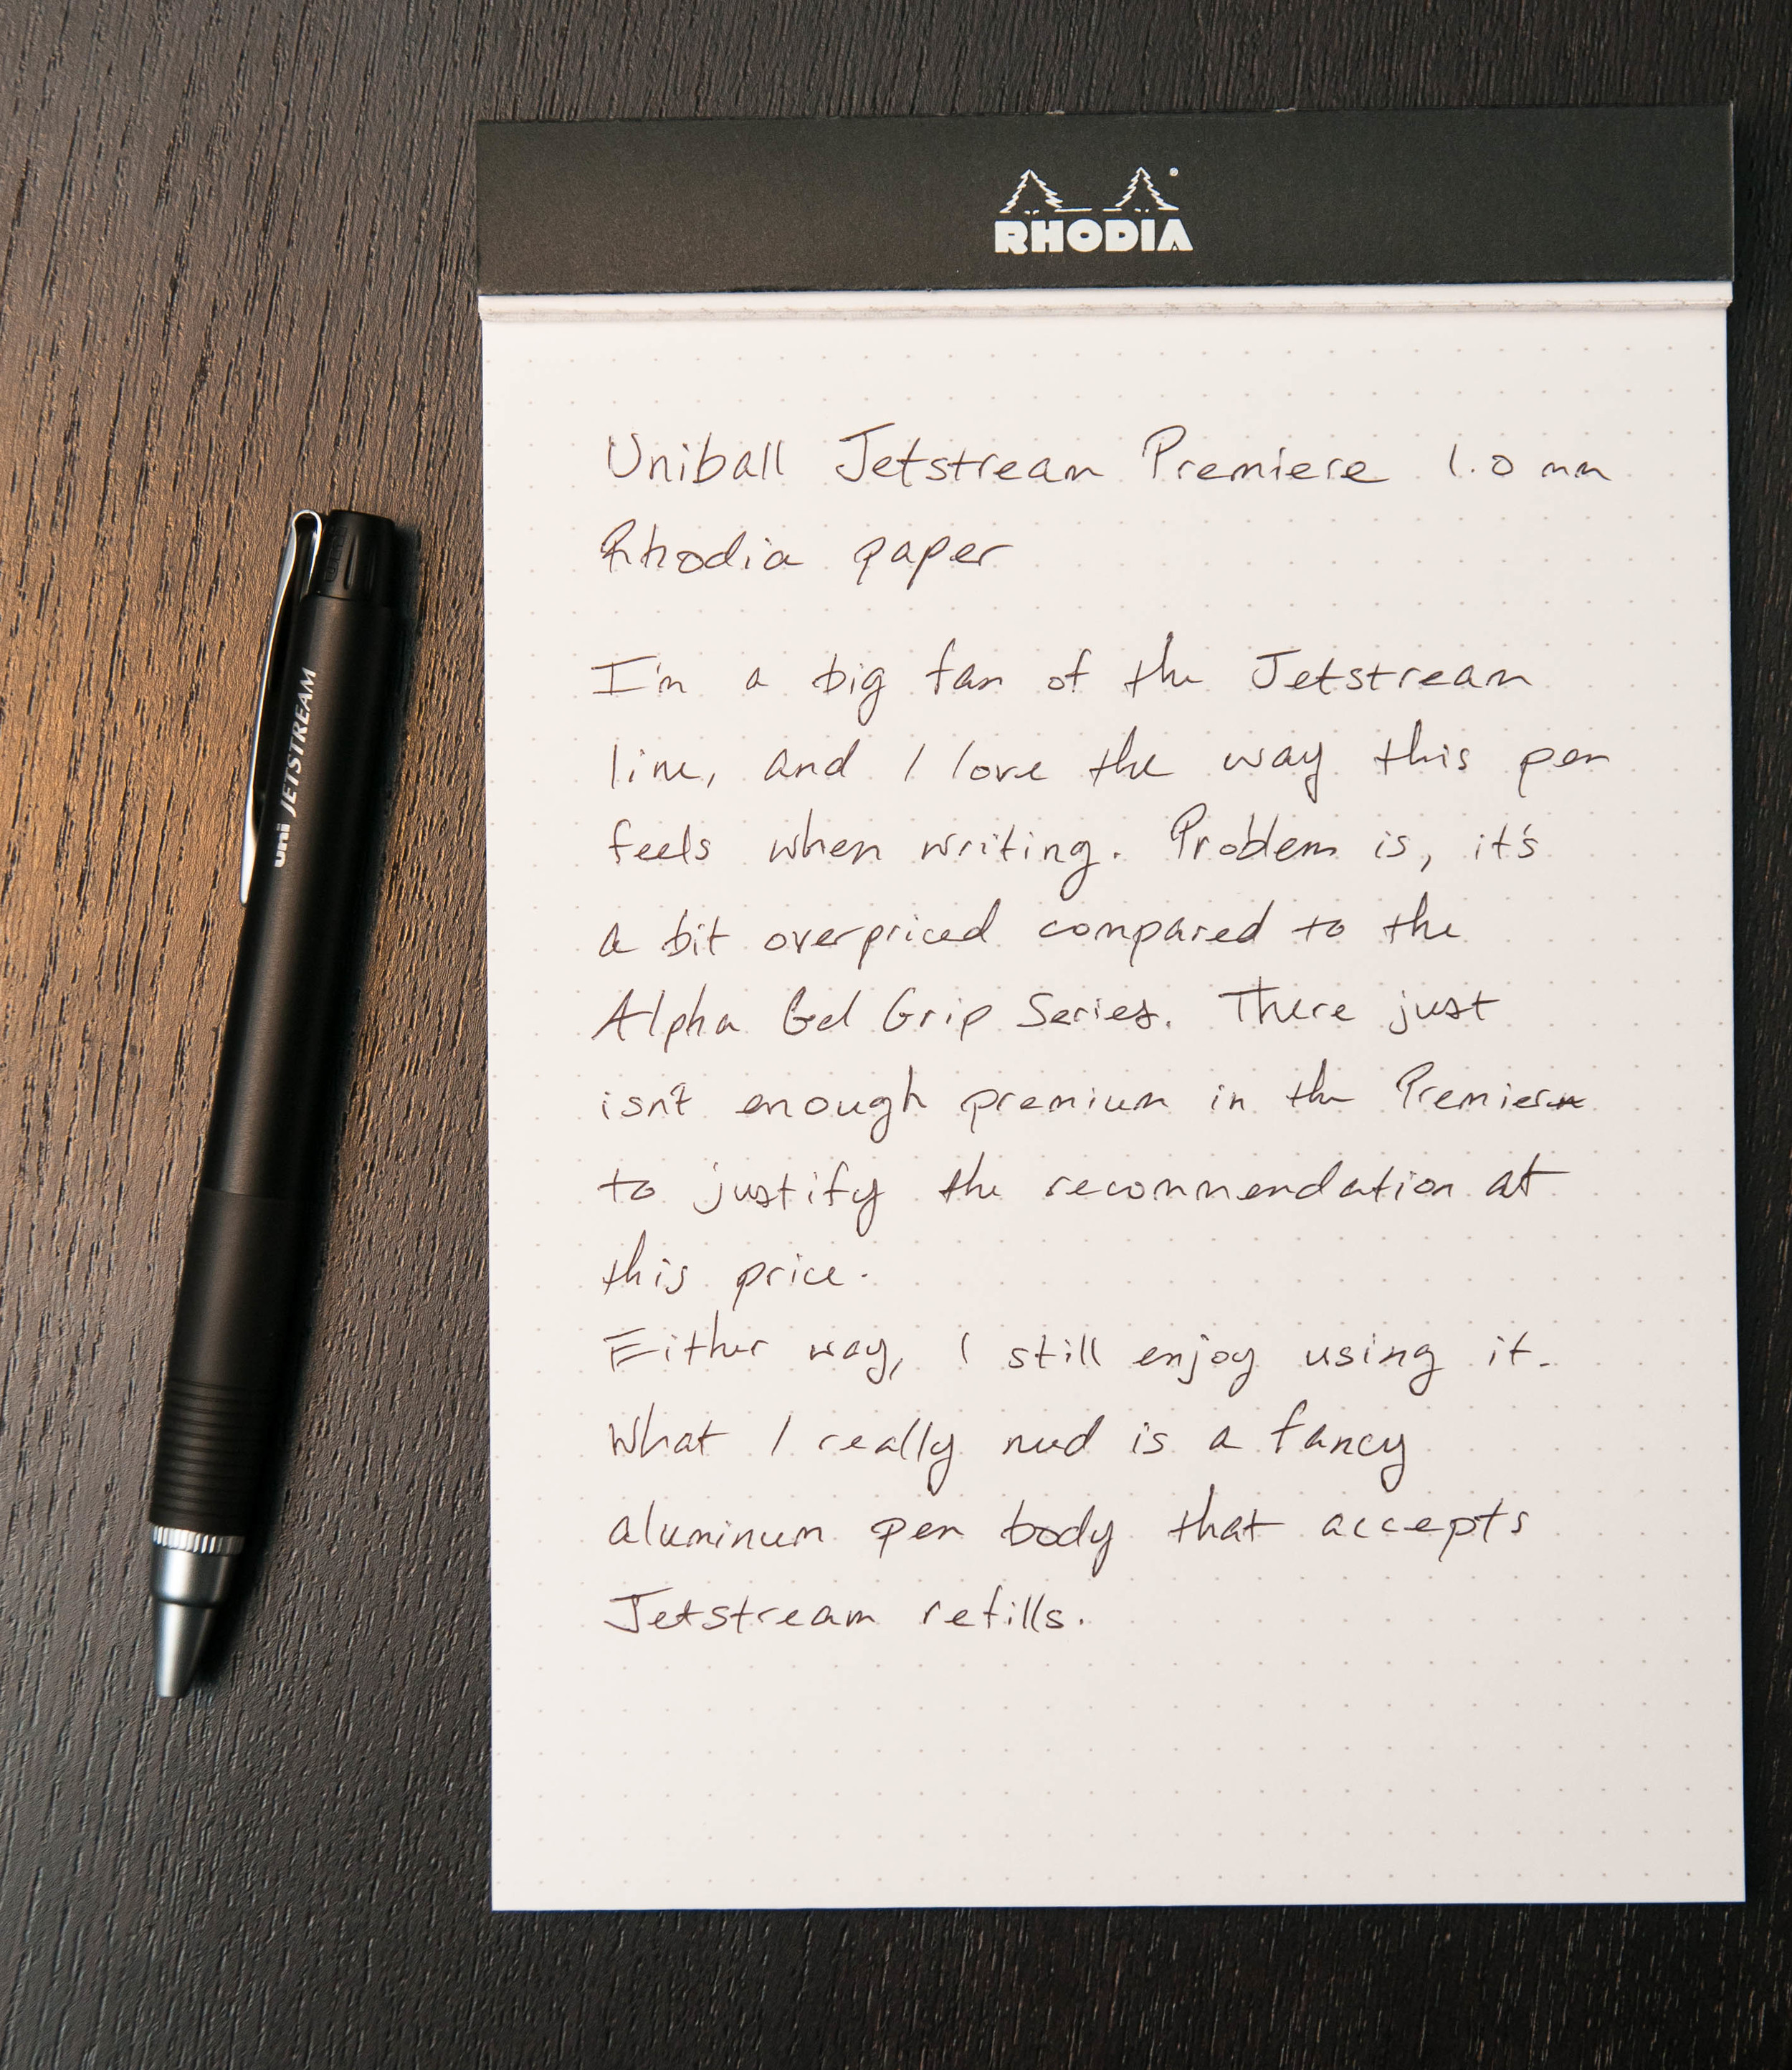 RHODIA
Uniball Jetstream Premiere 1.0 mm
Rhodia paper
I'm a big fan of the Jetstream
line, and I love the way this pen
feels when writing. Problem is, it's
a bit overpriced compared to the
Alpha Gel Grip Series. There just
isn't enough premium in the Premiere
to justify the recommendation at
this price.
Either way, I still enjoy using it.
What I really need is a fancy
aluminum pen body that accepts
Jetstream refills.
uni JETSTREAM